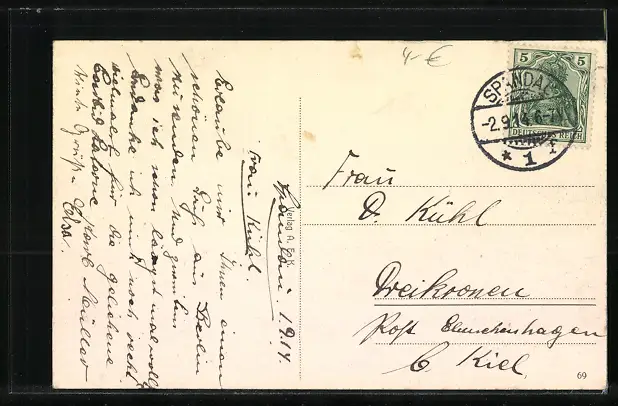 Spandau 1.9.14.
Frau Kühl.
Erlaube mir Ihnen einen
schönen Gruß aus Berlin
zu senden. Und zweitens
was ich schon längst mal wollte
bedanke ich mich noch recht
vielmals für die geliehene
Karbid Laterne Karl Müller
Grüße Elsa.
Verlag A. & K.
4-€
5 5
DEUTSCHES REICH
SPANDAU
-2.9.14.6-7
* 1
Frau
D. Kühl
Dreikronen
Post Elmschenhagen
b. Kiel.
69